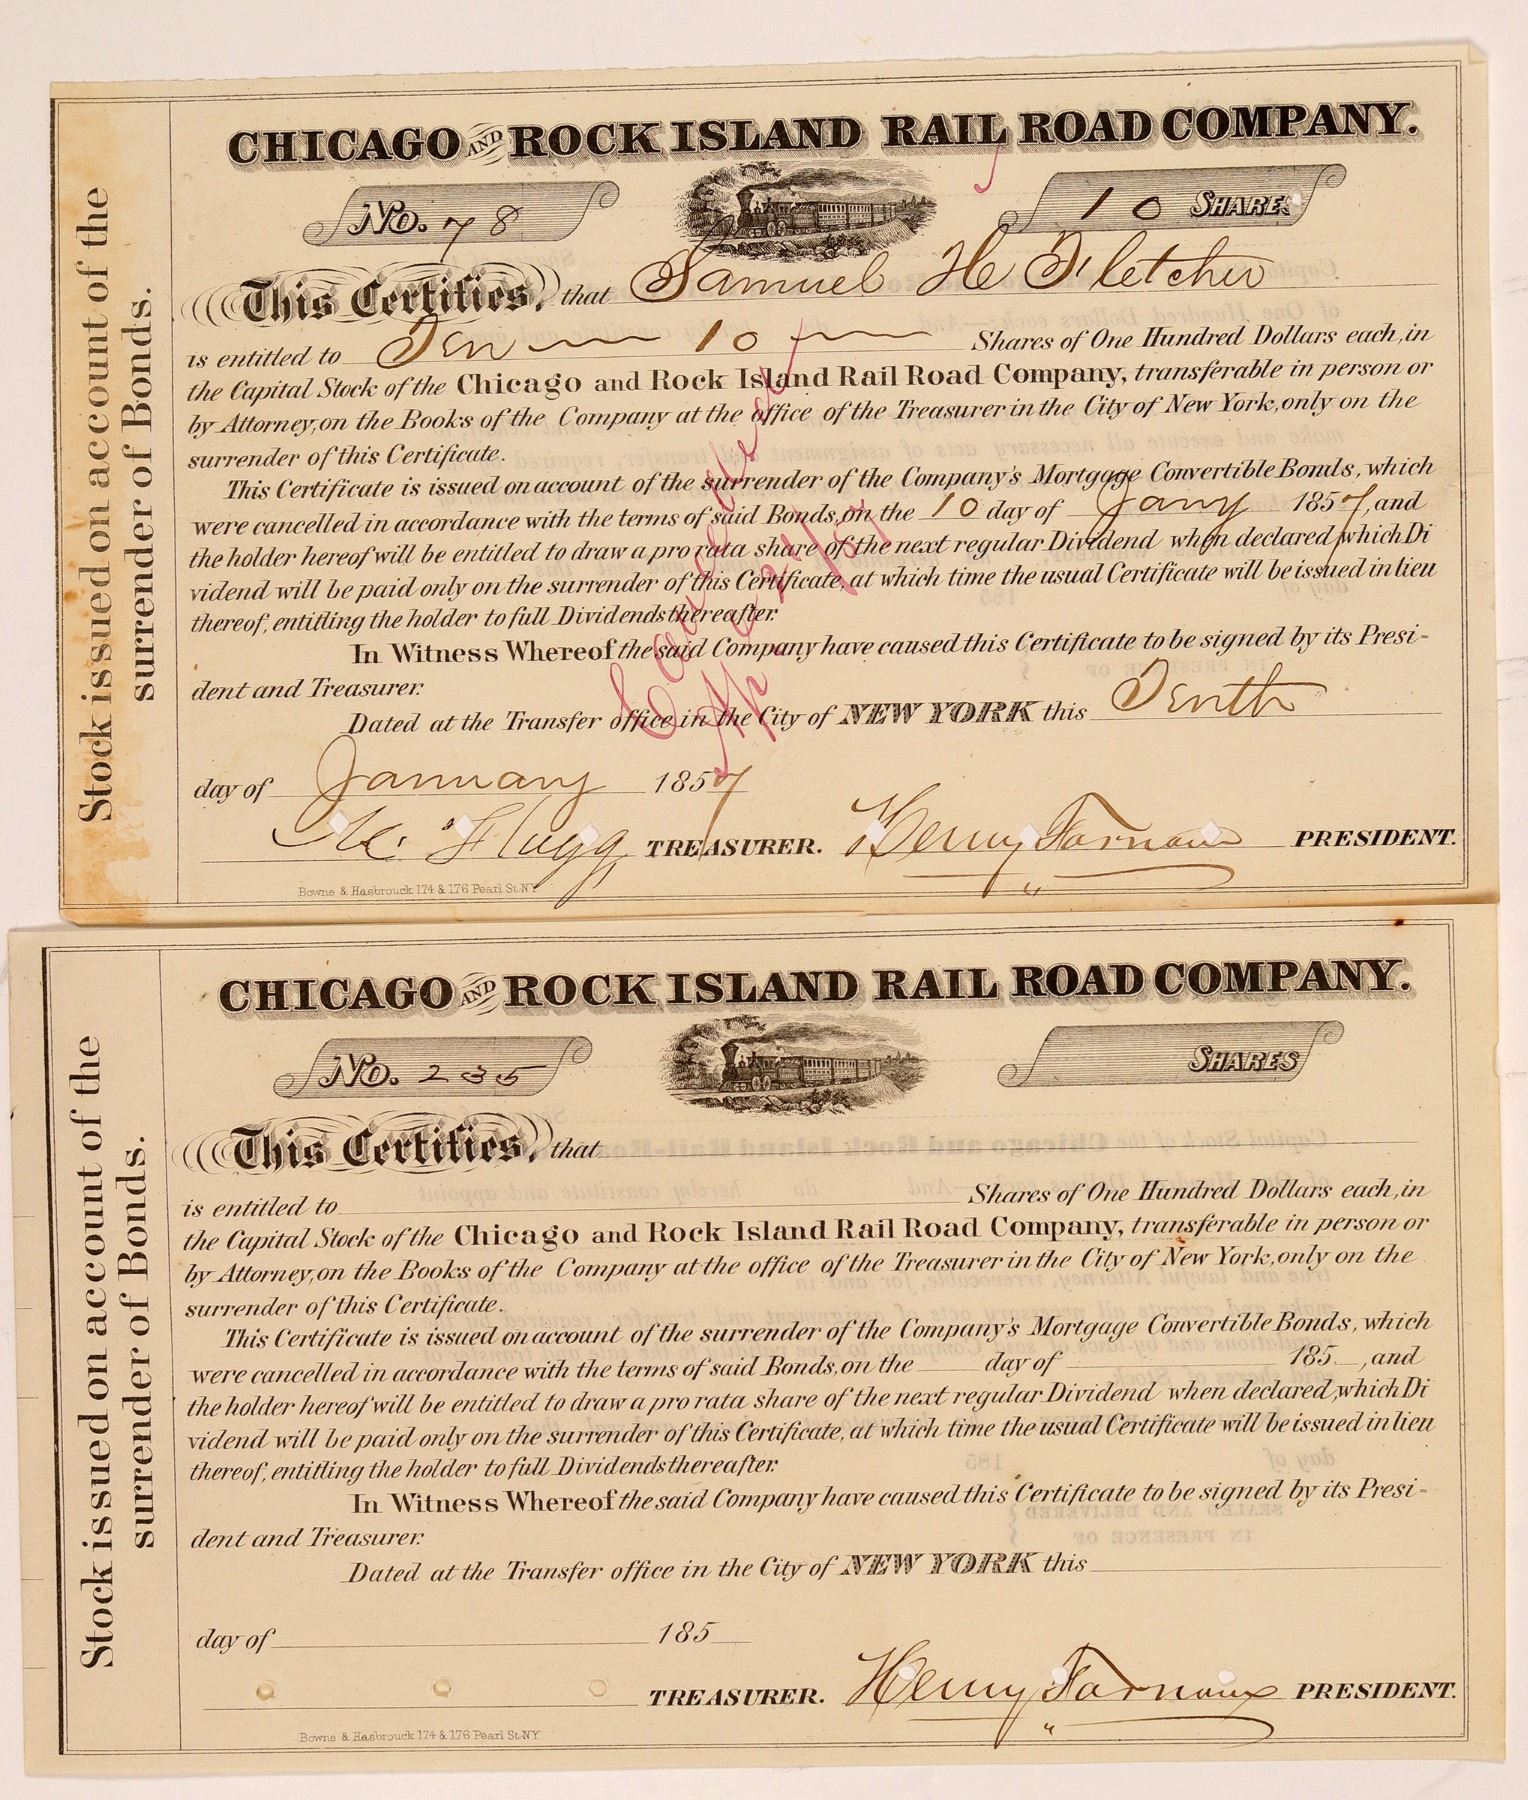 Stock issued on account of the
surrender of Bonds.
CHICAGO AND ROCK ISLAND RAIL ROAD COMPANY.
No. 78
10 SHARES
This Certifies, that Samuel H Fletcher
is entitled to Ten 10 Shares of One Hundred Dollars each, in
the Capital Stock of the Chicago and Rock Island Rail Road Company, transferable in person or
by Attorney, on the Books of the Company at the office of the Treasurer in the City of New York, only on the
surrender of this Certificate.
This Certificate is issued on account of the surrender of the Company's Mortgage Convertible Bonds, which
were cancelled in accordance with the terms of said Bonds, on the 10 day of Jany 1857, and
the holder hereof will be entitled to draw a pro rata share of the next regular Dividend when declared, which Di
vidend will be paid only on the surrender of this Certificate, at which time the usual Certificate will be issued in lieu
thereof, entitling the holder to full Dividends thereafter.
In Witness Whereof the said Company have caused this Certificate to be signed by its Presi-
dent and Treasurer.
Dated at the Transfer office in the City of NEW YORK this Tenth
day of January 1857
TREASURER. Henry Farnam PRESIDENT.
Bowne & Hasbrouck 174 & 176 Pearl St. NY
Cancelled
Stock issued on account of the
surrender of Bonds.
CHICAGO AND ROCK ISLAND RAIL ROAD COMPANY.
No. 235
SHARES
This Certifies, that
is entitled to Shares of One Hundred Dollars each, in
the Capital Stock of the Chicago and Rock Island Rail Road Company, transferable in person or
by Attorney, on the Books of the Company at the office of the Treasurer in the City of New York, only on the
surrender of this Certificate.
This Certificate is issued on account of the surrender of the Company's Mortgage Convertible Bonds, which
were cancelled in accordance with the terms of said Bonds, on the day of 185 , and
the holder hereof will be entitled to draw a pro rata share of the next regular Dividend when declared, which Di
vidend will be paid only on the surrender of this Certificate, at which time the usual Certificate will be issued in lieu
thereof, entitling the holder to full Dividends thereafter.
In Witness Whereof the said Company have caused this Certificate to be signed by its Presi-
dent and Treasurer.
Dated at the Transfer office in the City of NEW YORK this
day of 185
TREASURER. Henry Farnam PRESIDENT.
Bowne & Hasbrouck 174 & 176 Pearl St. NY